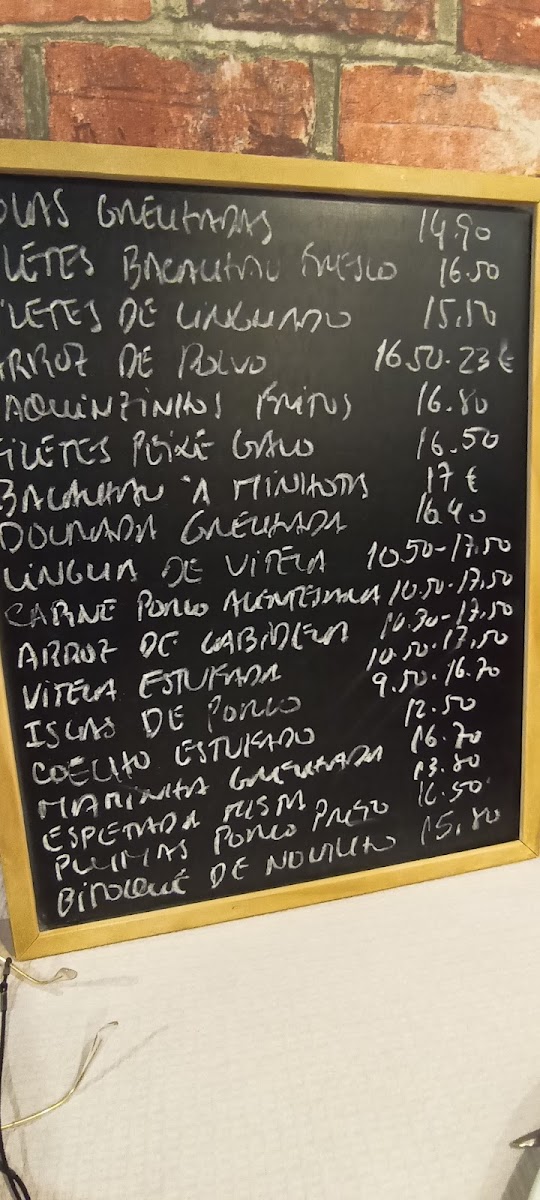 OLAS GRELHADAS 14.90
LETES BACALHAU FRESCO 16.50
ILETES DE LINGUADO 15.50
ARROZ DE POLVO 16.50-23€
AQUINZINHOS FRITOS 16.80
FILETES PEIXE GALO 16.50
BACALHAU "A MINHOTA 17€
DOURADA GRELHADA 16.40
LINGUA DE VITELA 10.50-17.50
CARNE PORCO ALENTEJANA 10.50-17.50
ARROZ DE CABIDELA 10.30-17.50
VITELA ESTUFADA 10.50-17.50
ISCAS DE PORCO 9.50-16.70
COELHO ESTUFADO 12.50
MAMINHA GRELHADA 16.70
ESPETADA MISTA 13.80
PLUMAS PORCO PRETO 16.50
BITOQUE DE NOVILHO 15.80